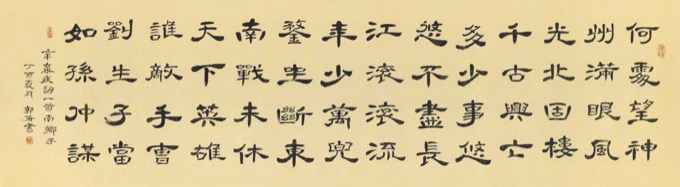 何處望神
州滿眼風
光北固樓
千古興亡
多少事悠
悠不盡長
江滾滾流
年少萬兜
鍪坐斷東
南戰未休
天下英雄
誰敵手曹
劉生子當
如孫仲謀
辛棄疾詞一首南鄉子
丁酉夏月 郭書